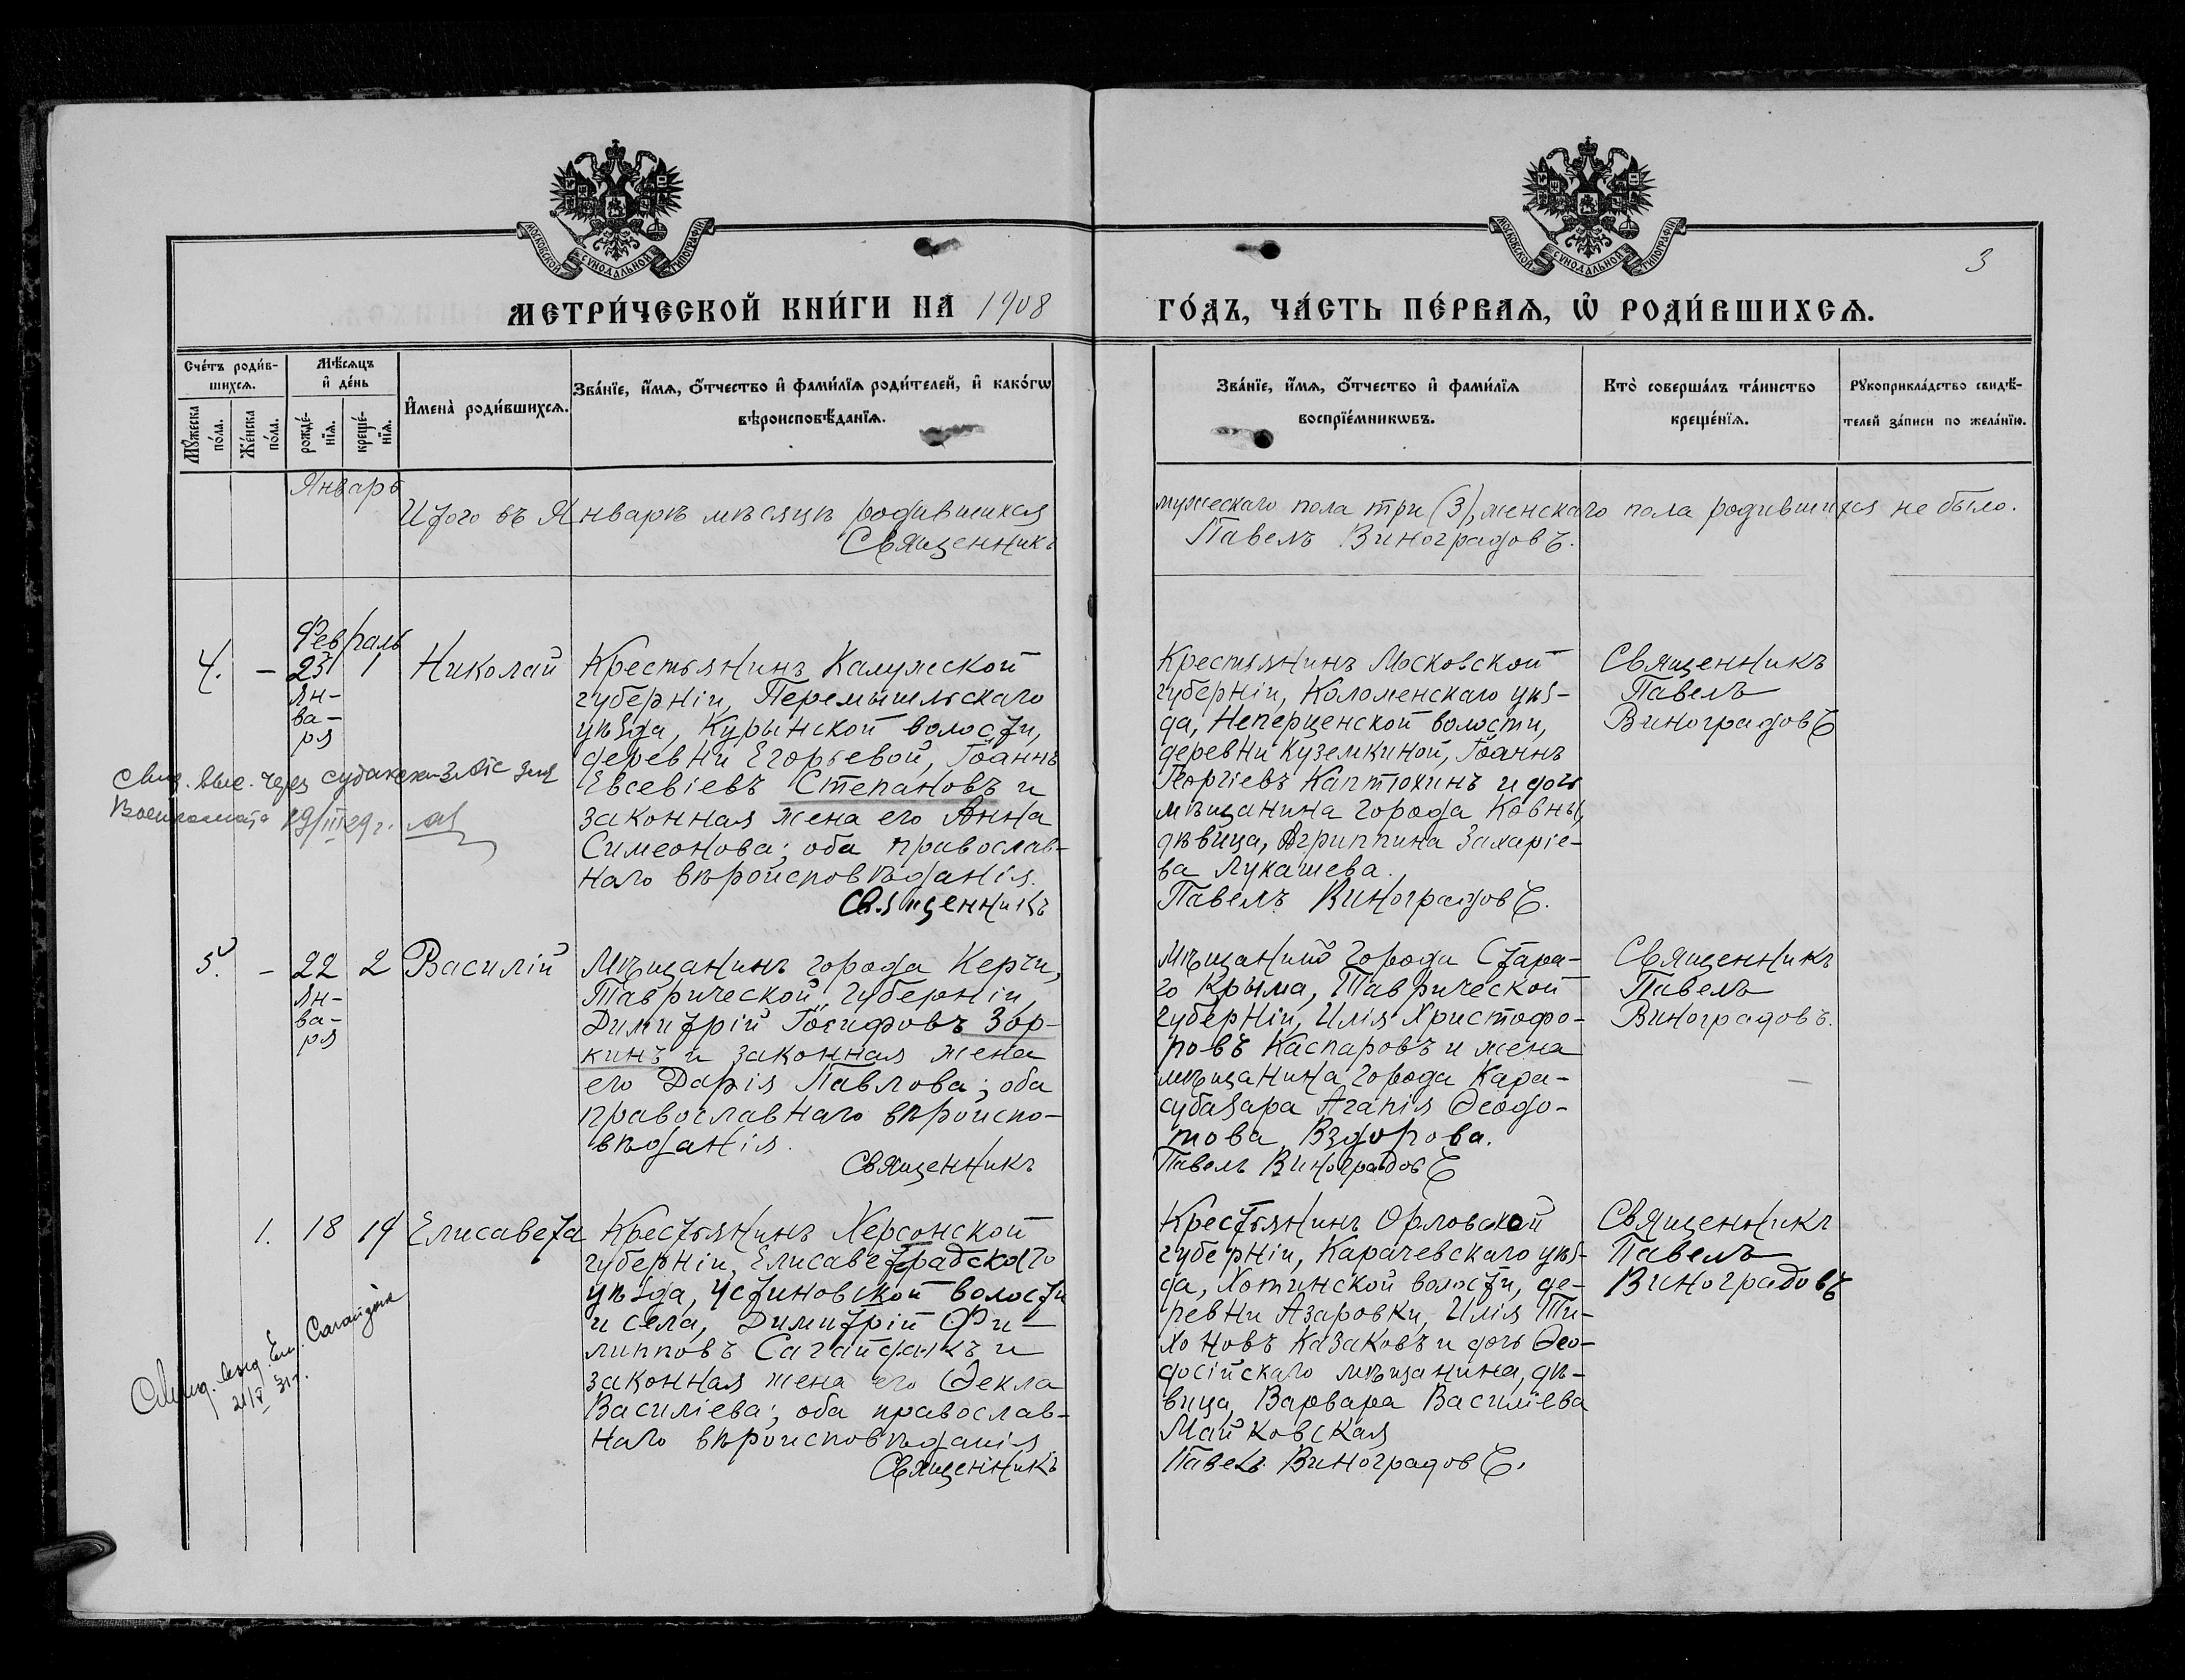 МОСКОВСКОЙ СѴНОДАЛЬНОЙ ТИПОГРАФІИ
МОСКОВСКОЙ СѴНОДАЛЬНОЙ ТИПОГРАФІИ
3
МЕТРИ́ЧЕСКОЙ КНИ́ГИ НА 1908 ГО́ДЪ, ЧА́СТЬ ПЕ́РВАѦ, Ѡ҆ РОДИ́ВШИХСѦ.
Сче́тъ роди́в-
шихсѧ.
Мѣ́сѧцъ
и҆ де́нь
Мꙋ́жеска
по́ла.
Же́нска
по́ла.
рожде́-
нїѧ.
креще́-
нїѧ.
И҆мена̀ роди́вшихсѧ.
Зва́нїе, и҆́мѧ, ѻ҆́тчество и҆ фами́лїѧ роди́телей, и҆ како́гѡ
вѣроисповѣ́данїѧ.
Зва́нїе, и҆́мѧ, ѻ҆́тчество и҆ фами́лїѧ
воспрїе́мникѡвъ.
Кто̀ соверша́лъ та́инство
креще́нїѧ.
Рꙋкоприкла́дство свидѣ́-
телей за́писи по жела́нїю.
Январь
Итого въ Январѣ мѣсяцѣ родившихся мужескаго пола три (3), женскаго пола родившихся не было.
Священникъ Павелъ Виноградовъ.
Февраль
4. - 25 1 Николай
Ян-
ва-
ря
Крестьянинъ Калужской
губерніи, Перемышльскаго
уѣзда, Курынской волости,
деревни Егорьевой, Іоаннъ
Евсевіевъ Степановъ и
законная жена его Анна
Симеонова; оба православ-
наго вѣроисповѣданія.
Священникъ
Крестьянинъ Московской
губерніи, Коломенскаго уѣз-
да, Неперценской волости,
деревни Куземкиной, Іоаннъ
Георгіевъ Каптюхинъ и дочь
мѣщанина города Ковны,
дѣвица, Агриппина Захаріе-
ва Лукашева.
Павелъ Виноградовъ.
Священникъ
Павелъ
Виноградовъ
через
29/III 29 г.
5. - 22 2 Василій
Ян-
ва-
ря
Мѣщанинъ города Керчи,
Таврической губерніи,
Димитрій Іосифовъ Зор-
кинъ и законная жена
его Дарія Павлова; оба
православнаго вѣроиспо-
вѣданія.
Священникъ
Мѣщанинъ города Стара-
го Крыма, Таврической
губерніи, Илія Христофо-
ровъ Каспаровъ и жена
мѣщанина города Кара-
субазара Агапія Ѳеодо-
това Вздорова.
Павелъ Виноградовъ
Священникъ
Павелъ
Виноградовъ.
1. 18 19 Елисавета
Крестьянинъ Херсонской
губерніи, Елисаветградскаго
уѣзда, Устиновской волости
и села, Димитрій Фи-
липповъ Сагайдакъ и
законная жена его Ѳекла
Василіева; оба православ-
наго вѣроисповѣданія
Священникъ
Крестьянинъ Орловской
губерніи, Карачевскаго уѣз-
да, Хотинской волости, де-
ревни Азаровки, Илія Ти-
хоновъ Казаковъ и дочь Ѳео-
досійскаго мѣщанина, дѣ-
вица, Варвара Василіева
Майковская
Павелъ Виноградовъ.
Священникъ
Павелъ
Виноградовъ
21/V 31 г.